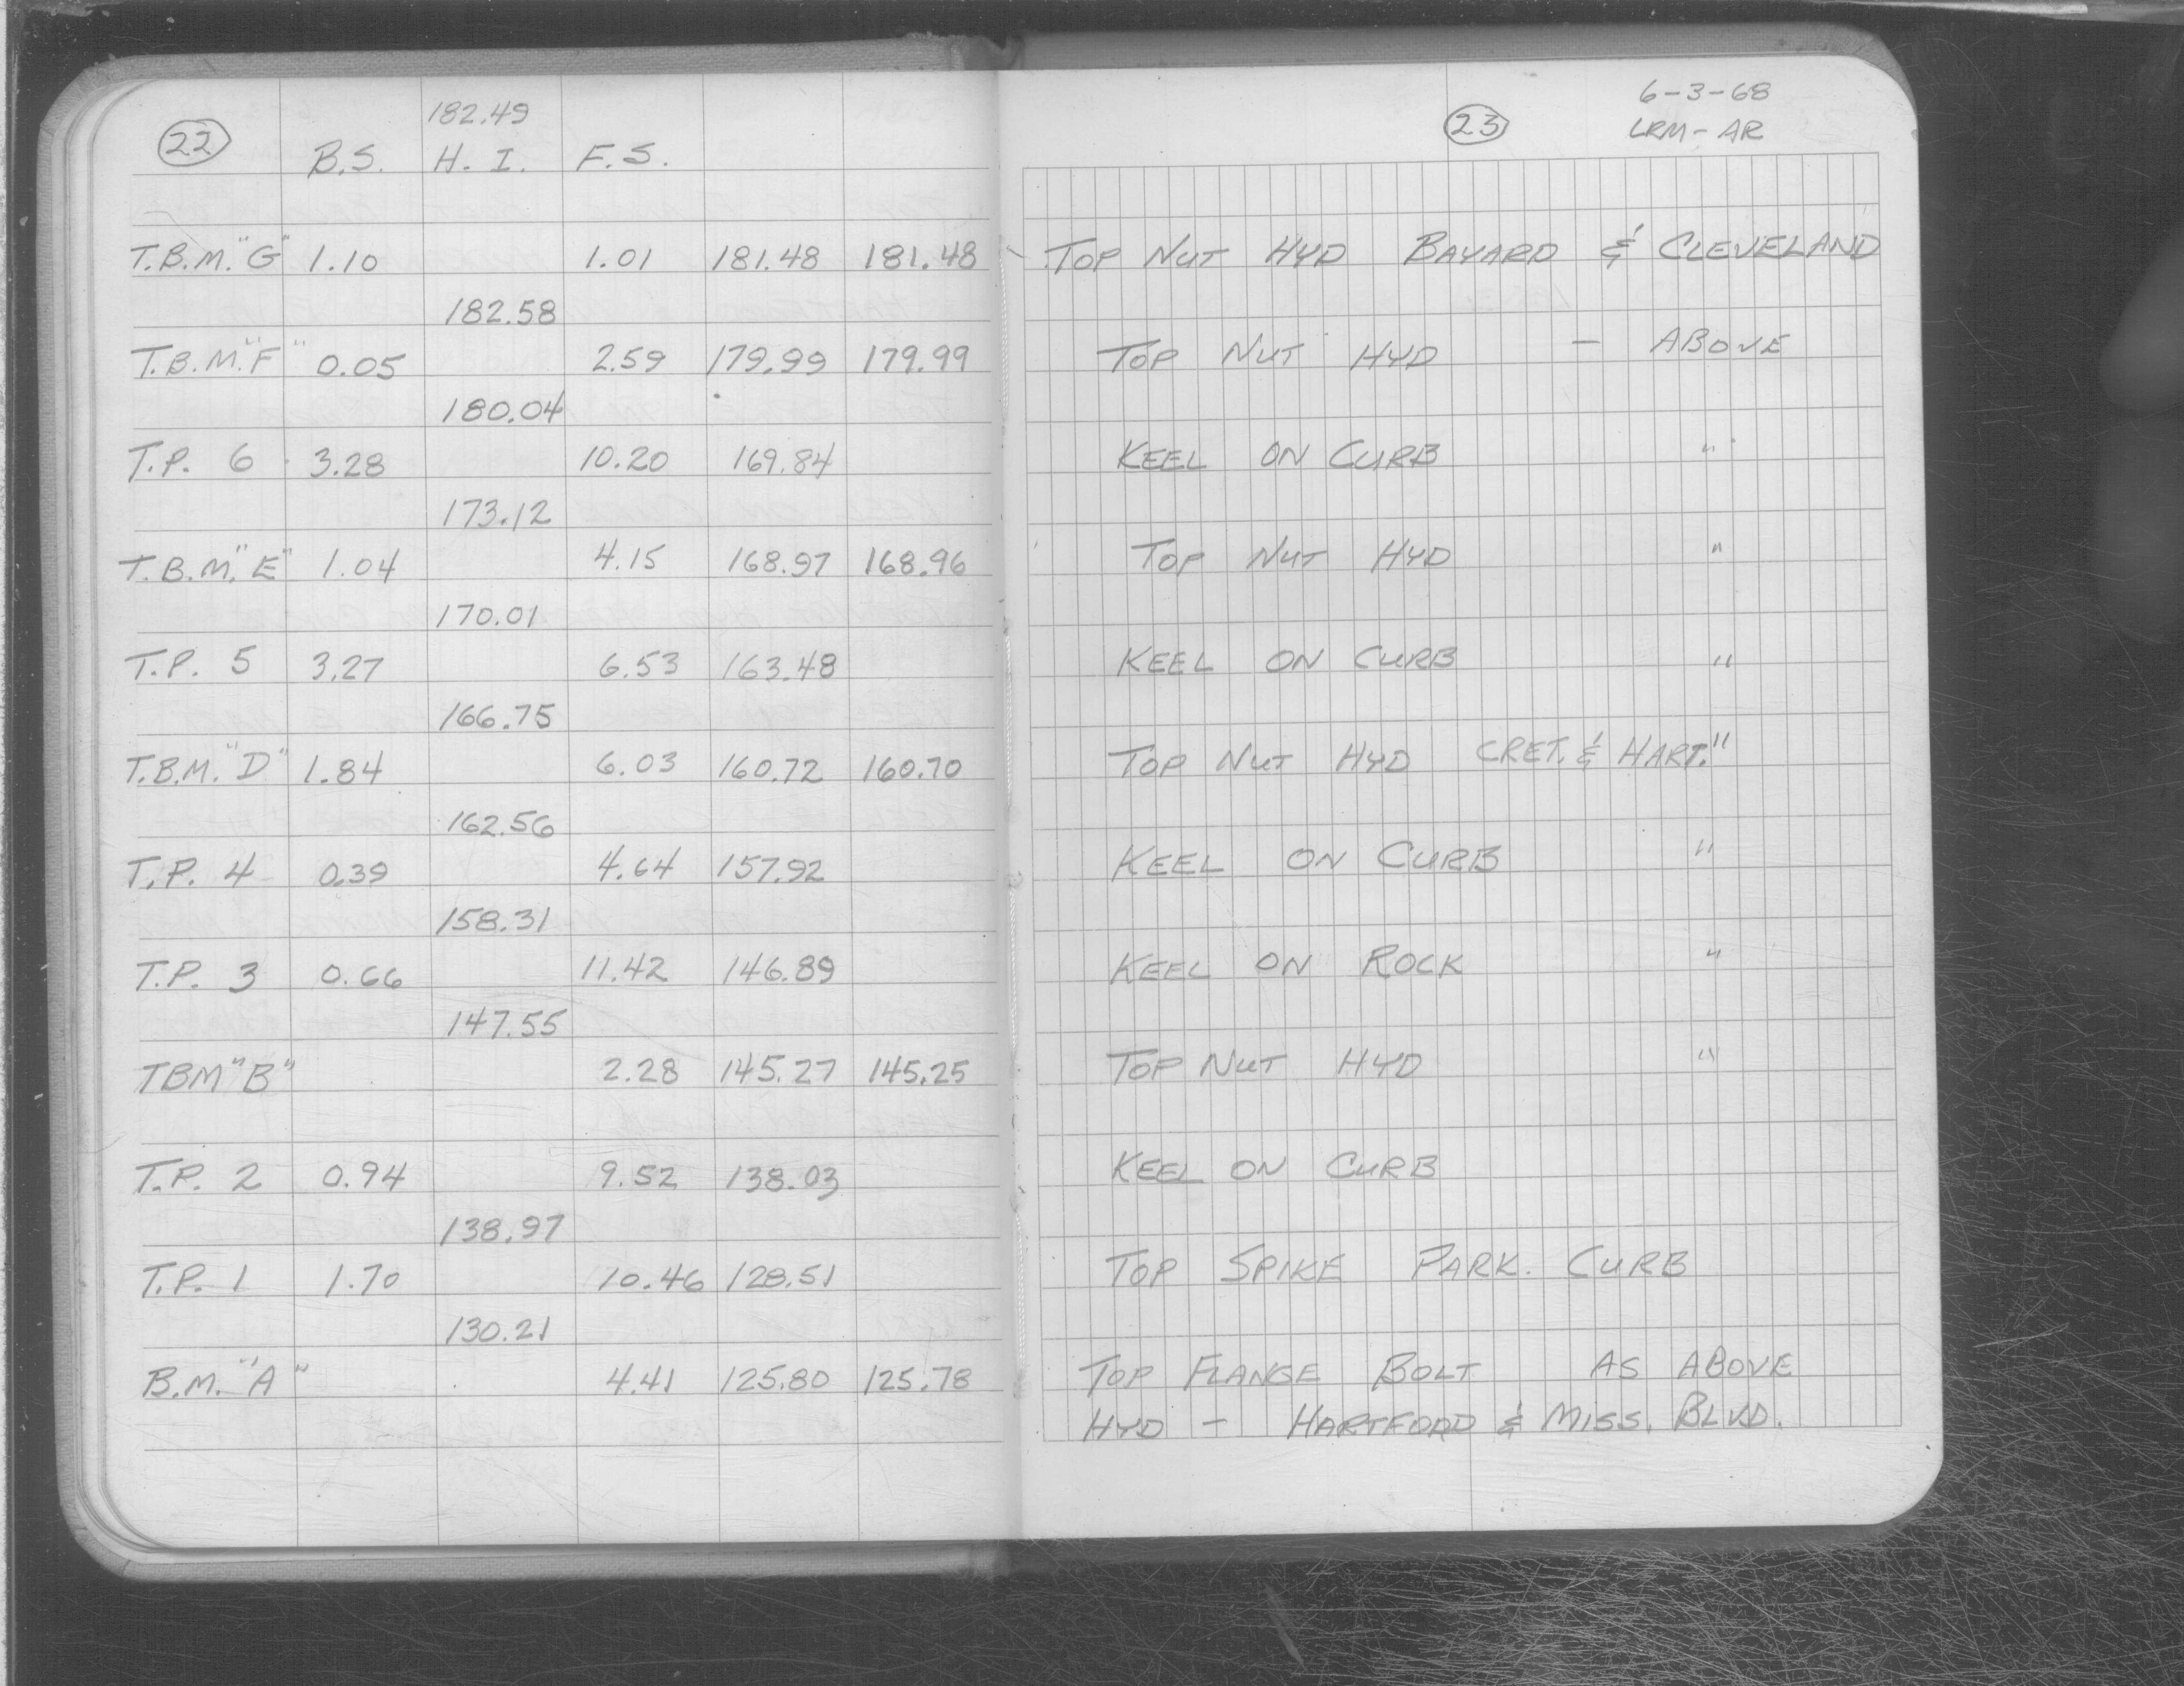 182.49
22 B.S. H.I. F.S.
T.B.M. "G" 1.10 1.01 181.48 181.48
182.58
T.B.M. "F" 0.05 2.59 179.99 179.99
180.04
T.P. 6 3.28 10.20 169.84
173.12
T.B.M. "E" 1.04 4.15 168.97 168.96
170.01
T.P. 5 3.27 6.53 163.48
166.75
T.B.M. "D" 1.84 6.03 160.72 160.70
162.56
T.P. 4 0.39 4.64 157.92
158.31
T.P. 3 0.66 11.42 146.89
147.55
TBM "B" 2.28 145.27 145.25
T.P. 2 0.94 9.52 138.03
138.97
T.P. 1 1.70 10.46 128.51
130.21
B.M. "A" 4.41 125.80 125.78
6-3-68
23 LRM-AR
TOP NUT HYD BAYARD & CLEVELAND
TOP NUT HYD - ABOVE
KEEL ON CURB "
TOP NUT HYD "
KEEL ON CURB "
TOP NUT HYD CRET. & HART. "
KEEL ON CURB "
KEEL ON ROCK "
TOP NUT HYD "
KEEL ON CURB
TOP SPIKE PARK. CURB
TOP FLANGE BOLT AS ABOVE
HYD - HARTFORD & MISS. BLVD.